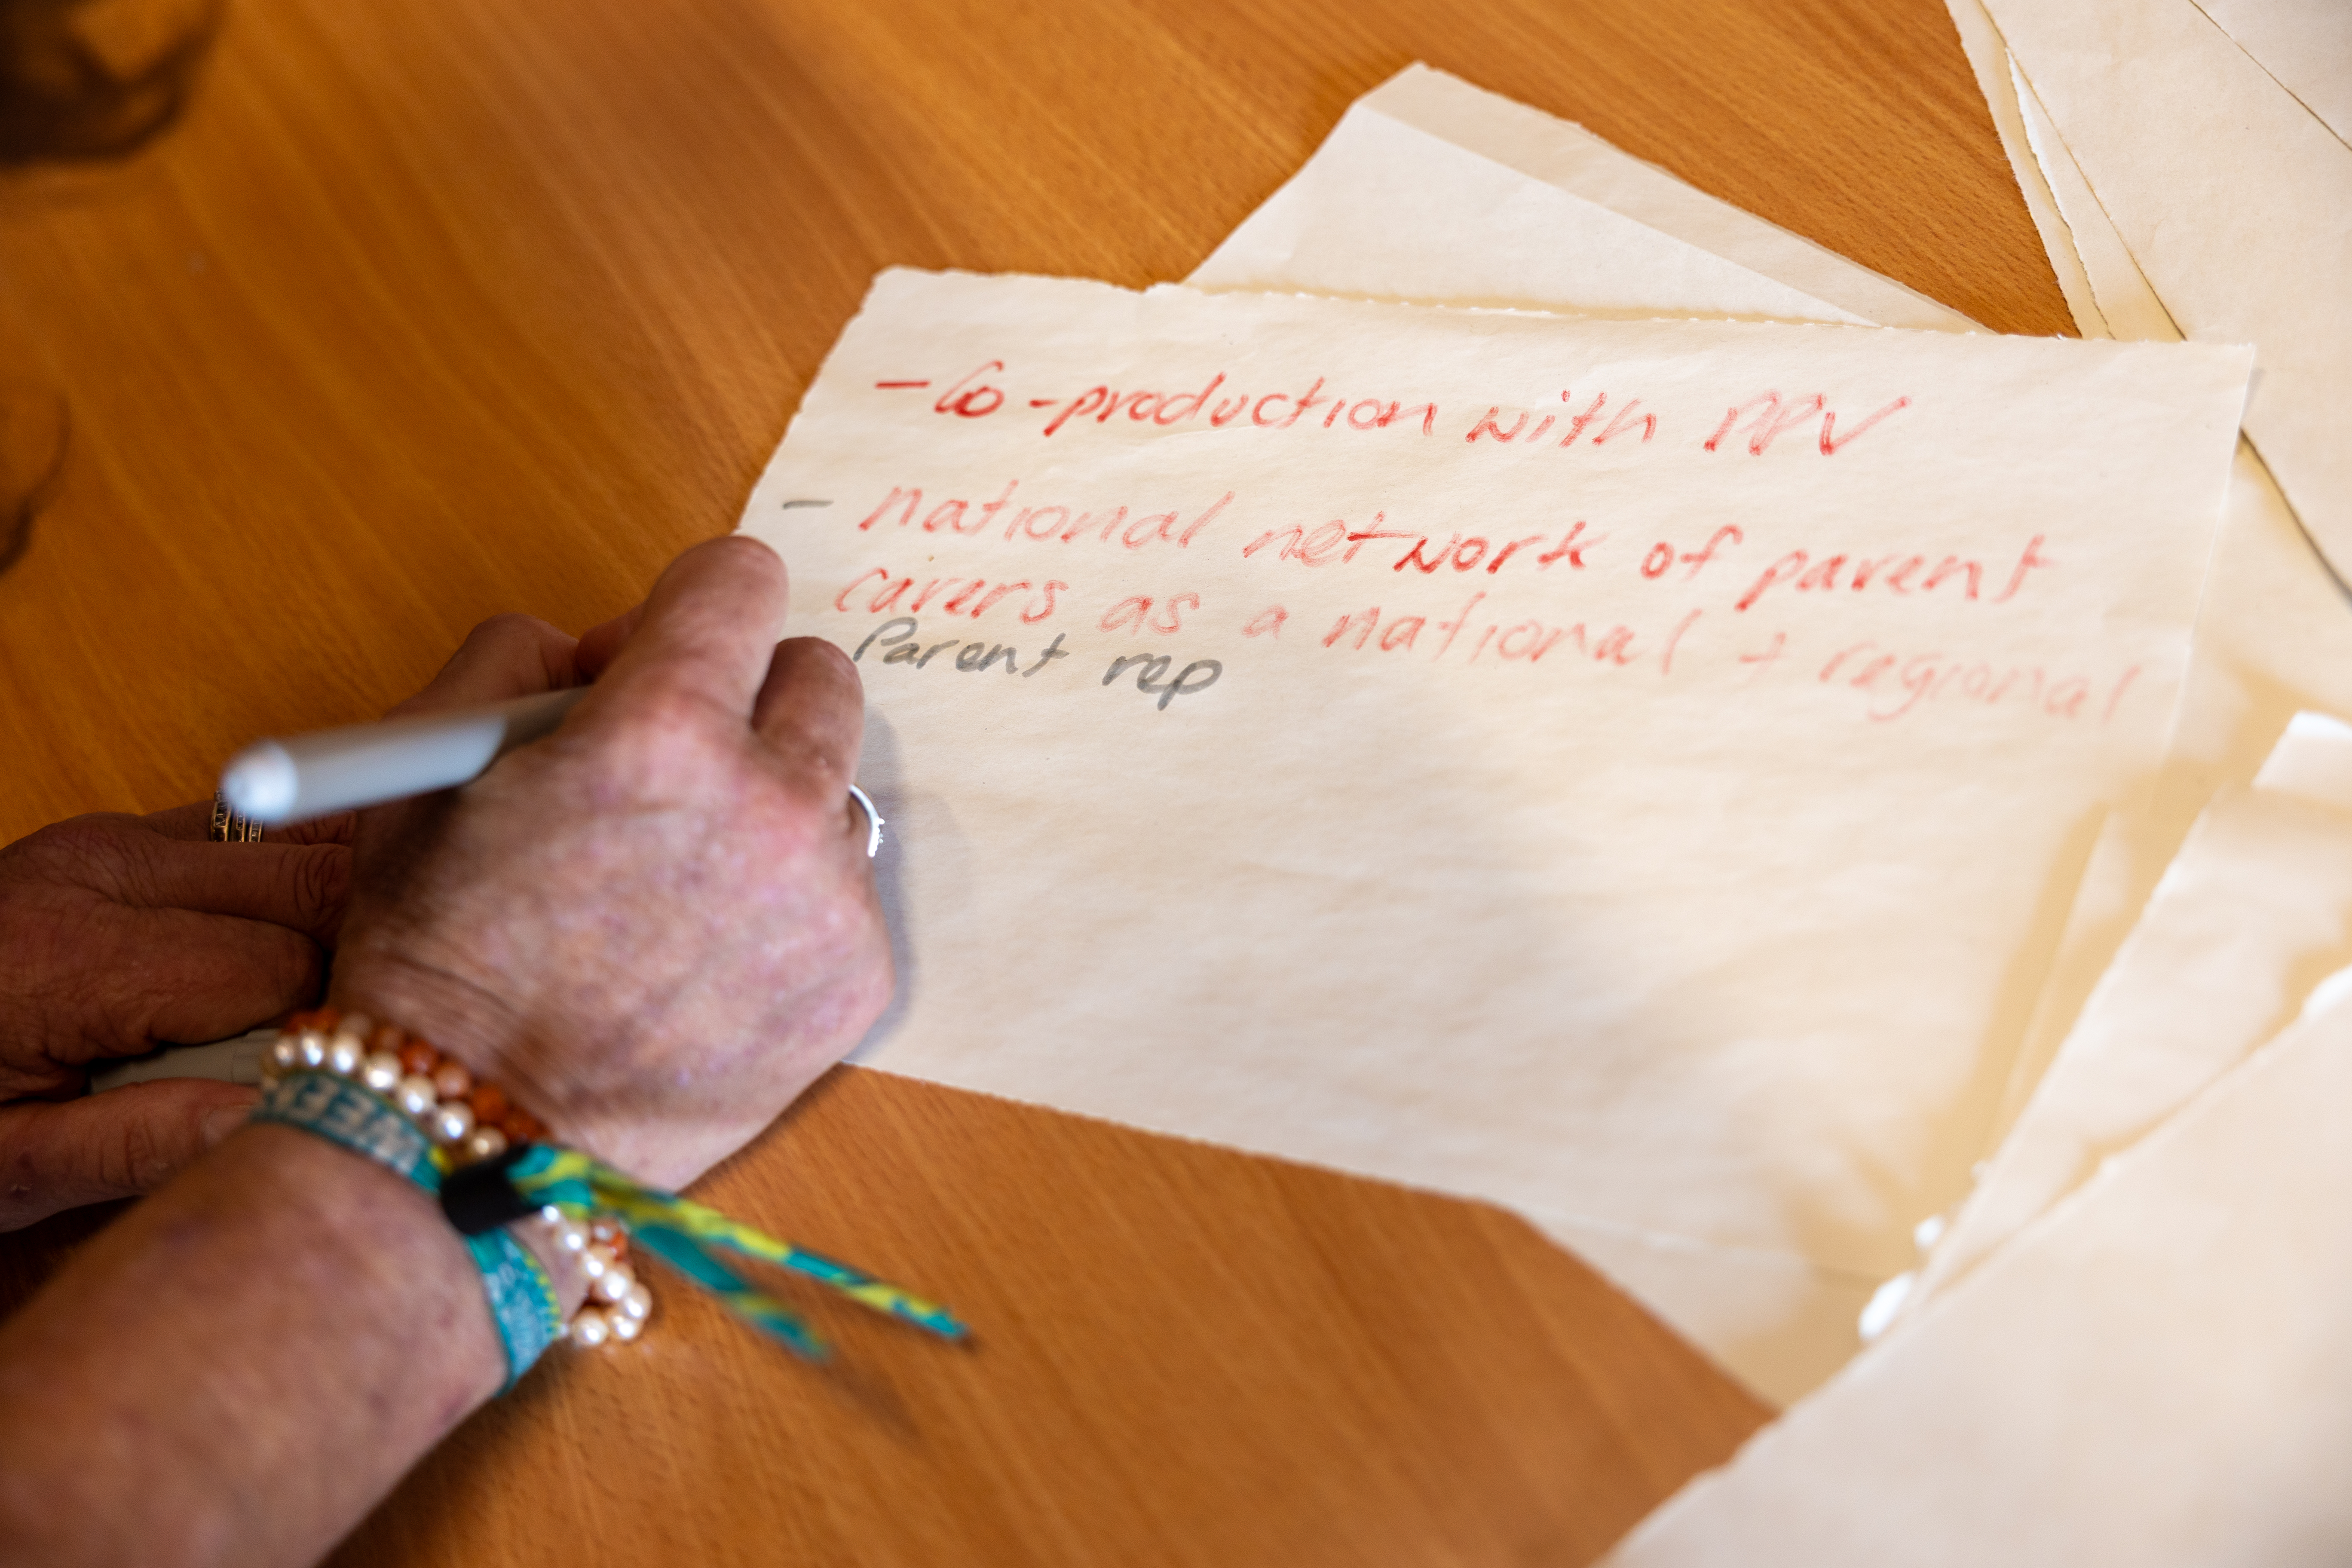 - Co-production with PPV
- national network of parent
carers as a national + regional
Parent rep